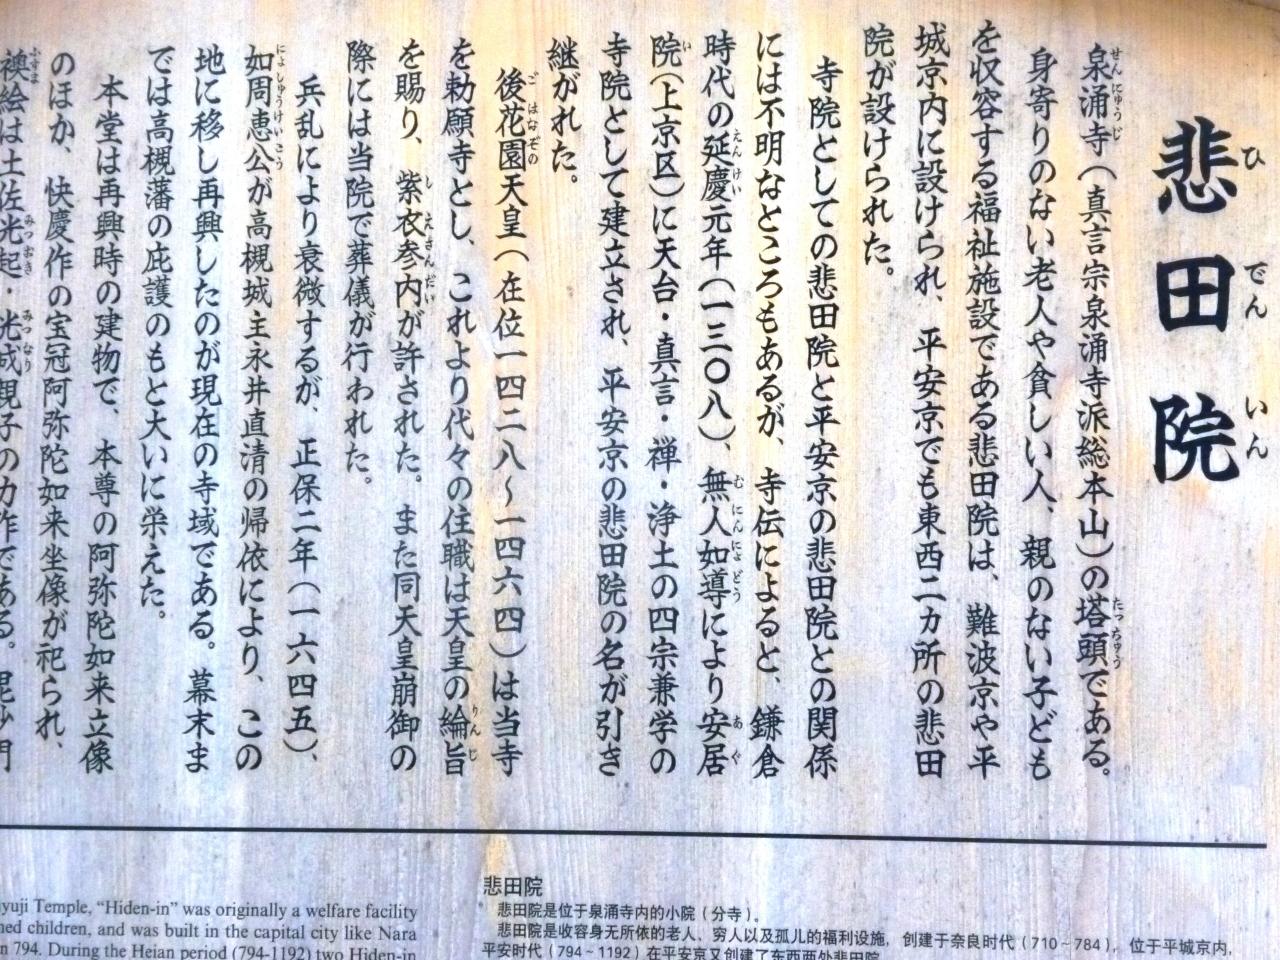 悲田院
泉涌寺（真言宗泉涌寺派総本山）の塔頭である。
身寄りのない老人や貧しい人、親のない子ども
を収容する福祉施設である悲田院は、難波京や平
城京内に設けられ、平安京でも東西二カ所の悲田
院が設けられた。
寺院としての悲田院と平安京の悲田院との関係
には不明なところもあるが、寺伝によると、鎌倉
時代の延慶元年（一三〇八）、無人如導により安居
院（上京区）に天台・真言・禅・浄土の四宗兼学の
寺院として建立され、平安京の悲田院の名が引き
継がれた。
後花園天皇（在位一四二八～一四六四）は当寺
を勅願寺とし、これより代々の住職は天皇の綸旨
を賜り、紫衣参内が許された。また同天皇崩御の
際には当院で葬儀が行われた。
兵乱により衰微するが、正保二年（一六四五）、
如周恵公が高槻城主永井直清の帰依により、この
地に移し再興したのが現在の寺域である。幕末ま
では高槻藩の庇護のもと大いに栄えた。
本堂は再興時の建物で、本尊の阿弥陀如来立像
のほか、快慶作の宝冠阿弥陀如来坐像が祀られ、
襖絵は土佐光起・光成親子の力作である。毘沙門
yuji Temple, “Hiden-in” was originally a welfare facility
ned children, and was built in the capital city like Nara
n 794. During the Heian period (794-1192) two Hiden-in
悲田院
悲田院是位于泉涌寺内的小院（分寺）。
悲田院是收容身无所依的老人、穷人以及孤儿的福利设施，创建于奈良时代（710～784），位于平城京内，
平安时代（794～1192）在平安京又创建了东西两处悲田院